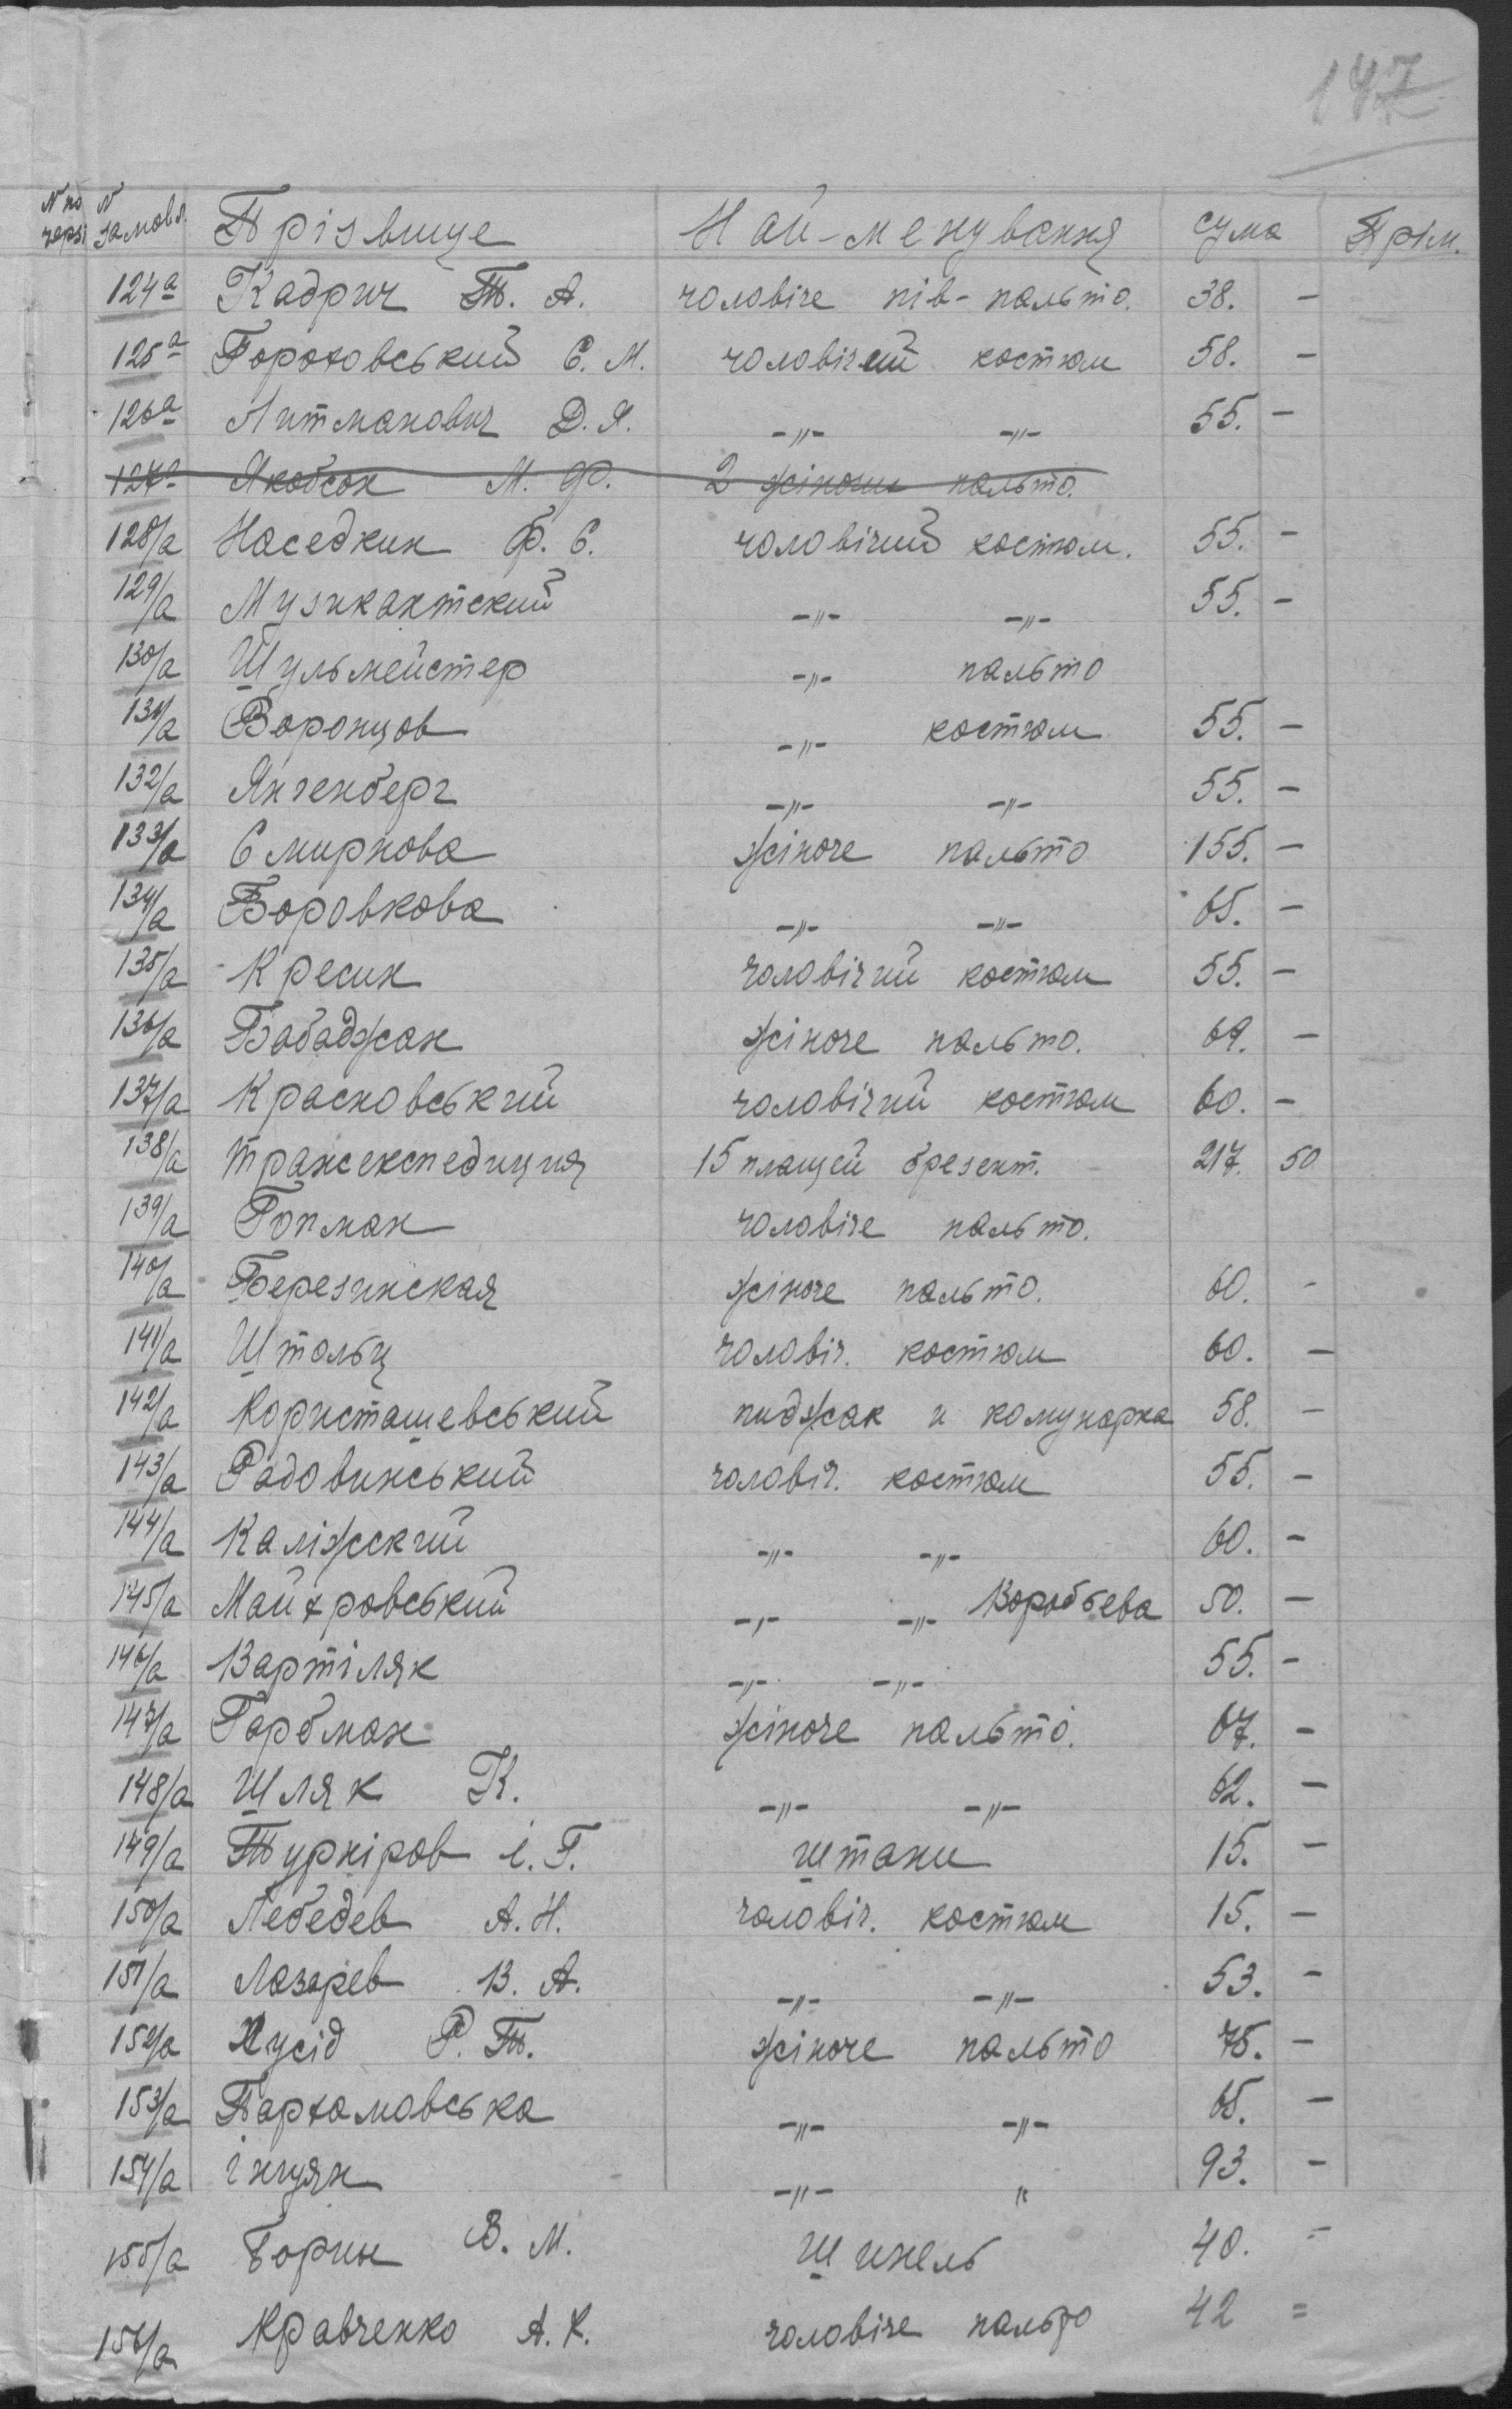 147
N по черзі N замовл. Прізвище Най-менування сума Прим.
124а Кадрич Т. А. чоловіче пів-пальто. 38. -
125а Гороховський Є. М. чоловічий костюм 58. -
126а Литманович Д. Я. -„- -„- 55. -
127а Якобсон М. Ф. 2 жіночи пальто.
128/а Наседкин Ф. Є. чоловічий костюм. 55. -
129/а Музикантский -„- -„- 55. -
130/а Шульмейстер -„- пальто
131/а Воронцов -„- костюм 55. -
132/а Янгенберг -„- -„- 55. -
133/а Смирнова жіноче пальто 155. -
134/а Боровкова -„- -„- 65. -
135/а Кресин чоловічий костюм 55. -
136/а Бабаджан жіноче пальто. 69. -
137/а Красновський чоловічий костюм 60. -
138/а Трансекспедиция 15 плащей брезент. 217. 50
139/а Гопман чоловіче пальто.
140/а Березинская жіноче пальто. 60. -
141/а Штольц чоловіч. костюм 60. -
142/а Користашевський пиджак и комунарка 58. -
143/а Радовинський чоловіч. костюм 55. -
144/а Каліжский -„- -„- 60. -
145/а Майхровський -„- -„- Воробьева 50. -
146/а Вартіляк -„- -„- 55. -
147/а Гарбман жіноче пальто. 67. -
148/а Шляк К. -„- -„- 62. -
149/а Турніров І. Г. штани 15. -
150/а Лебедев А. Н. чоловіч. костюм 15. -
151/а Лазарев В. А. -„- -„- 53. -
152/а Хусід Р. Т. жіноче пальто 75. -
153/а Пархамовська -„- -„- 65. -
154/а Інцян -„- „ 93. -
155/а Борин В. М. шинель 40. =
156/а Кравченко А. К. чоловіче пальто 42 =